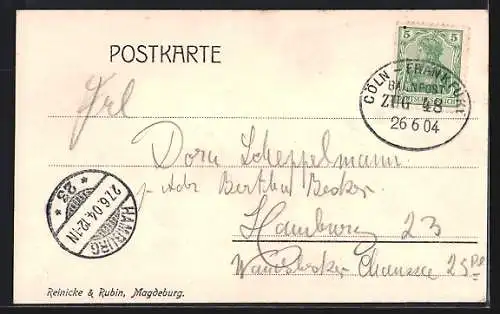 POSTKARTE
5
DEUTSCHES REICH
CÖLN - FRANKFURT
BAHNPOST
ZUG 48
26 6 04
Frl
Dora Scheppelmann
p. Adr Berthen Becker
Hamburg 23
Wandsbecker Chaussee 25
HAMBURG
27.6.04.12-1N
* 23 *
Reinicke & Rubin, Magdeburg.